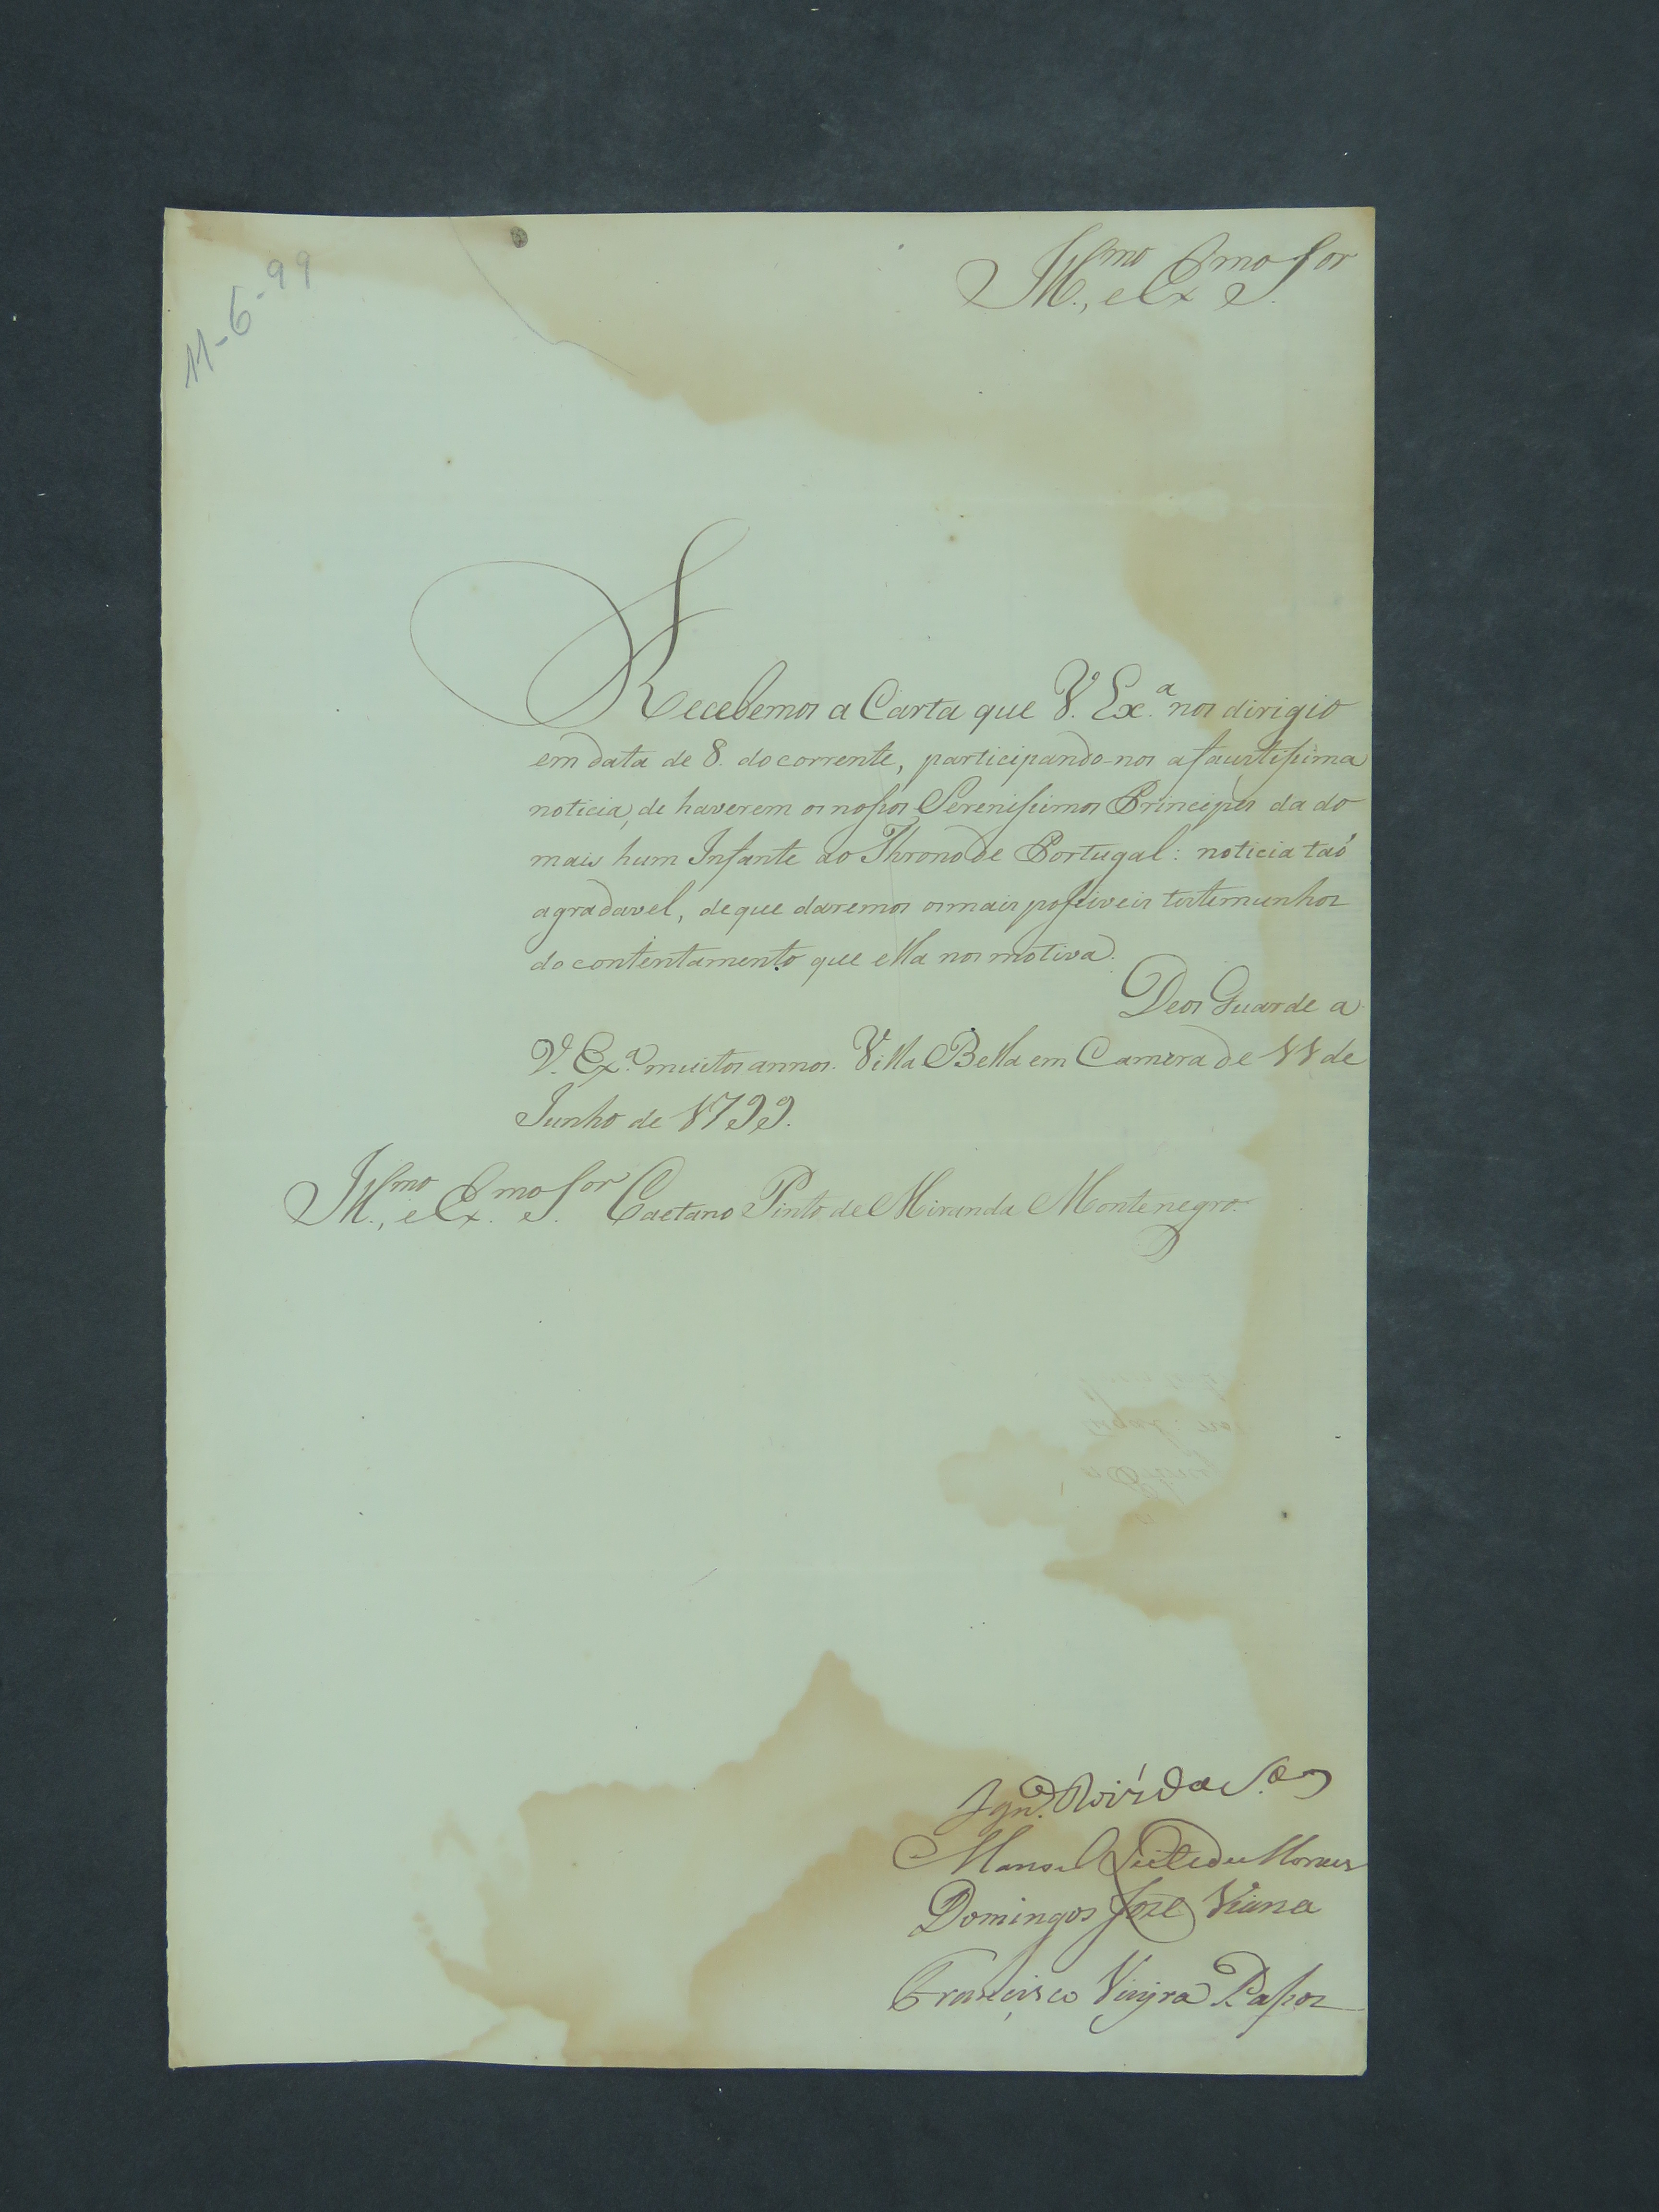 11-6-99
Ill.mo, e Ex.mo S.or
Recebemos a Carta que V. Ex.a nos dirigio
em data de 8. do corrente, participando-nos a faustissima
noticia, de haverem os nossos Serenissimos Principes dado
mais hum Infante ao Throno de Portugal: noticia taõ
agradavel, de que daremos os mais possiveis testemunhos
do contentamento que ella nos motiva.
Deos Guarde a
V. Ex.a muitos annos. Villa Bella em Camera de 11 de
Junho de 1799.
Ill.mo, e Ex.mo S.or Caetano Pinto de Miranda Montenegro.
Ign.o Roiz da S.a
Manoel Leite de Moraes
Domingos Jozé Viana
Francisco Vieyra Passos